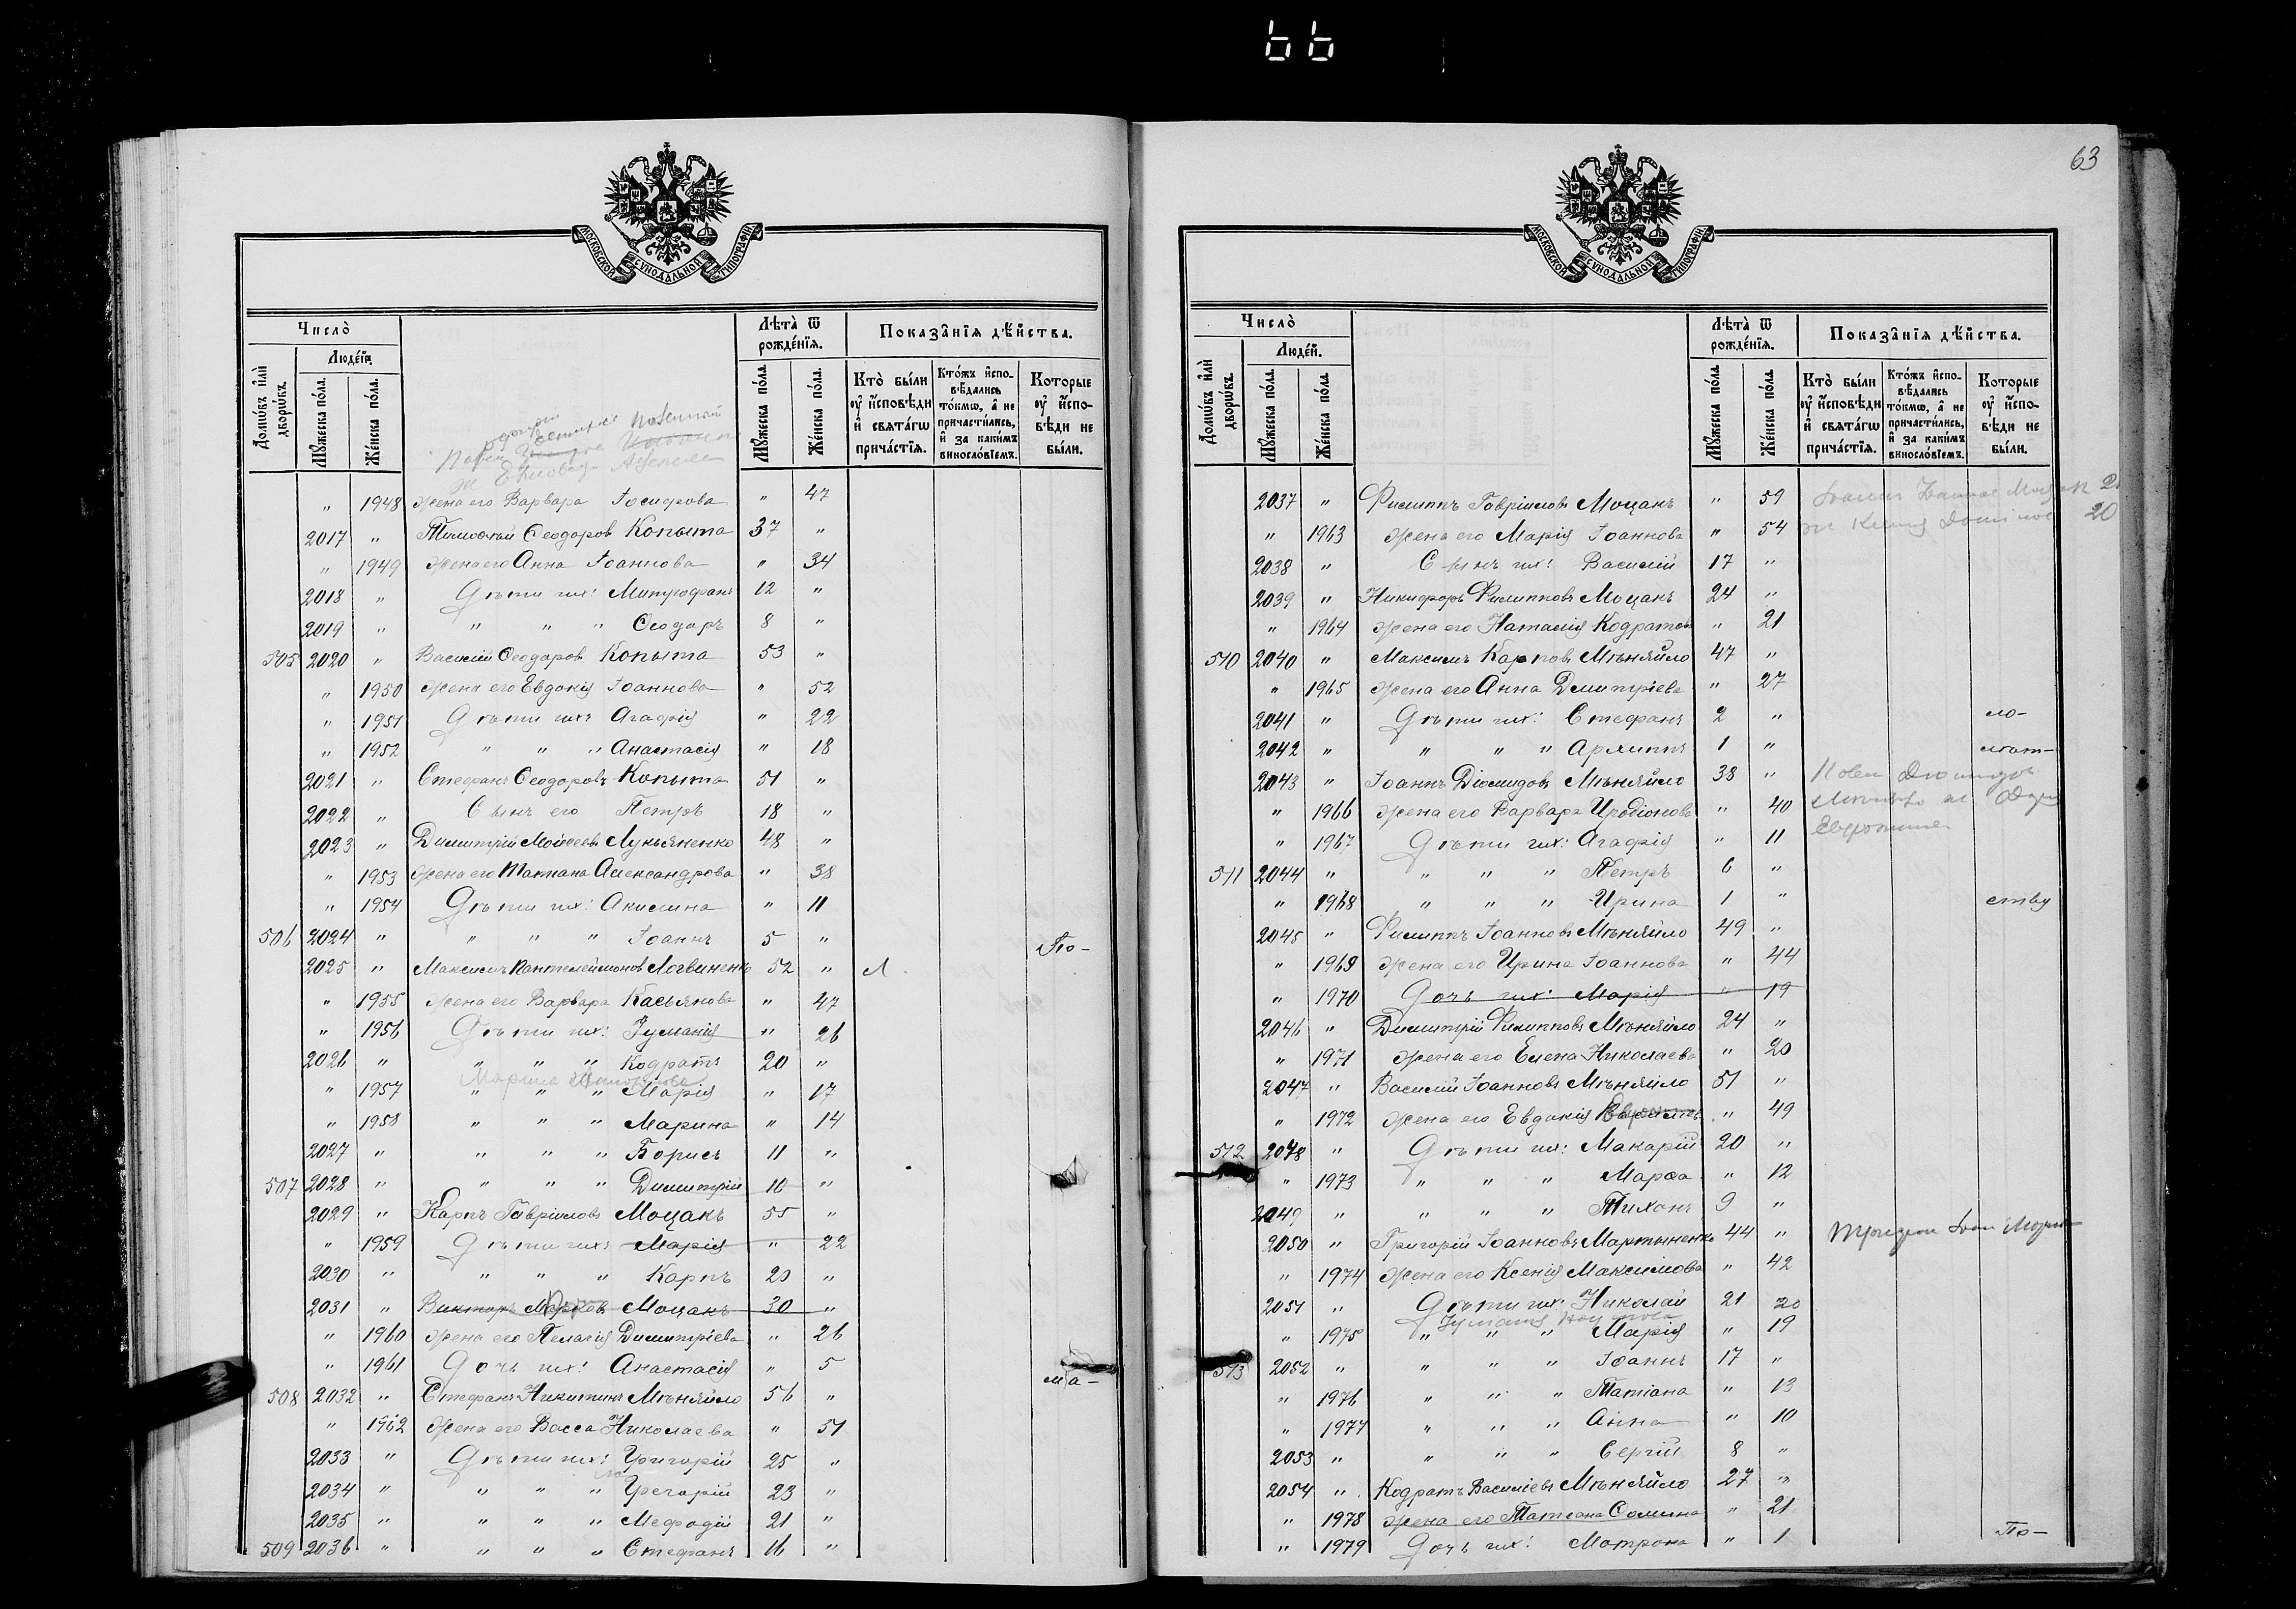 66
МОСКОВСКОЙ СУНОДАЛЬНОЙ ТИПОГРАФІИ
Число̀
Людє́й.
Домѡ́въ и҆лѝ дворѡ́въ.
Мꙋ́жеска по́ла.
Же́нска по́ла.
Лѣ́та ѿ рожде́нїѧ.
Мꙋ́жеска по́ла.
Же́нска по́ла.
Показа̑нїѧ дѣ́йства.
Кто̀ бы́ли оу҆ и҆́сповѣди и҆ свѧта́гѡ прича́стїѧ.
Кто́жъ и҆спо-вѣ́дались то́кмѡ, а҆ не причасти́лись, и҆ за каки́мъ винослѡ́вїемъ.
Которые оу҆ и҆́спо-вѣди не бы́ли.
" 1948 Жена его Варвара Іосифова " 47
2017 " Тимоѳей Ѳеодоровъ Копыта 37 "
" 1949 Жена его Анна Іоаннова " 34
2018 " Дѣти ихъ: Митрофанъ 12 "
2019 " " " " Ѳеодоръ 8 "
505 2020 " Василій Ѳеодоровъ Копыта 53 "
" 1950 Жена его Евдокія Іоаннова " 52
" 1951 Дѣти ихъ Агафія " 22
" 1952 " " " Анастасія " 18
2021 " Стефанъ Ѳеодоровъ Копыта 51 "
2022 " Сынъ его Петръ 18 "
2023 " Димитрій Моисеевъ Лукьяненко 48 "
" 1953 Жена его Татіана Александрова " 38
" 1954 Дѣти ихъ: Акилина " 11
506 2024 " " " " Іоаннъ 5 " По-
2025 " Максимъ Пантелеймоновъ Логвиненко 52 " Л.
" 1955 Жена его Варвара Касьянова " 47
" 1956 Дѣти ихъ: Іуліанія " 26
2026 " " " " Кодратъ 20 "
" 1957 " " " Марія " 17
" 1958 " " " Марина " 14
2027 " " " " Борисъ 11 "
507 2028 " " " " Димитрій 10 "
2029 " Карпъ Гавріиловъ Моцакъ 55 "
" 1959 Дѣти ихъ Марія " 22
2030 " " " " Карпъ 20 "
2031 " Викторъ Марковъ Моцакъ 30 "
" 1960 Жена его Пелагія Димитріева " 26
" 1961 Дочь ихъ: Анастасія " 5 ма-
508 2032 " Стефанъ Никитинъ Мѣняйло 56 "
" 1962 Жена его Васса Николаева " 51
2033 " Дѣти ихъ: Григорій 25 "
2034 " " " " Григорій 23 "
2035 " " " " Меѳодій 21 "
509 2036 " " " " Стефанъ 16 "
63
МОСКОВСКОЙ СУНОДАЛЬНОЙ ТИПОГРАФІИ
Число̀
Людє́й.
Домѡ́въ и҆лѝ дворѡ́въ.
Мꙋ́жеска по́ла.
Же́нска по́ла.
Лѣ́та ѿ рожде́нїѧ.
Мꙋ́жеска по́ла.
Же́нска по́ла.
Показа̑нїѧ дѣ́йства.
Кто̀ бы́ли оу҆ и҆́сповѣди и҆ свѧта́гѡ прича́стїѧ.
Кто́жъ и҆спо-вѣ́дались то́кмѡ, а҆ не причасти́лись, и҆ за каки́мъ винослѡ́вїемъ.
Которые оу҆ и҆́спо-вѣди не бы́ли.
2037 " Филиппъ Гавріиловъ Моцакъ " 59
" 1963 Жена его Марія Іоаннова " 54 20
2038 " Сынъ ихъ: Василій 17 "
2039 " Никифоръ Филипповъ Моцакъ 24 "
" 1964 Жена его Наталія Кодратова " 21
510 2040 " Максимъ Карповъ Мѣняйло 47 "
" 1965 Жена его Анна Димитріева " 27
2041 " Дѣти ихъ: Стефанъ 2 " ло-
2042 " " " " Архиппъ 1 " лѣт-
2043 " Іоаннъ Діомидовъ Мѣняйло 38 "
" 1966 Жена его Варвара Иродіонова " 40
" 1967 Дѣти ихъ: Агафія " 11
511 2044 " " " " Петръ 6 "
" 1968 " " " Ирина 1 " ству
2045 " Филиппъ Іоанновъ Мѣняйло 49 "
" 1969 Жена его Ирина Іоаннова " 44
" 1970 Дочь ихъ: Марія " 19
2046 " Димитрій Филипповъ Мѣняйло 24 "
" 1971 Жена его Елена Николаева " 20
2047 " Василій Іоанновъ Мѣняйло 51 "
" 1972 Жена его Евдокія " 49
512 2048 " Дѣти ихъ: Макарій 20 "
" 1973 " " " Марѳа " 12
2049 " " " " Тихонъ 9 "
2050 " Григорій Іоанновъ Мартыненко 44 "
" 1974 Жена его Ксенія Максимова " 42
2051 " Дѣти ихъ: Николай 21 20
" 1975 " " " Марія " 19
513 2052 " " " " Іоаннъ 17 "
" 1976 " " " Татіана " 13
" 1977 " " " Анна " 10
2053 " " " " Сергій 8 "
2054 " Кодратъ Василіевъ Мѣняйло 27 "
" 1978 Жена его Татіана " 21
" 1979 Дочь ихъ: Матрона " 1 По-